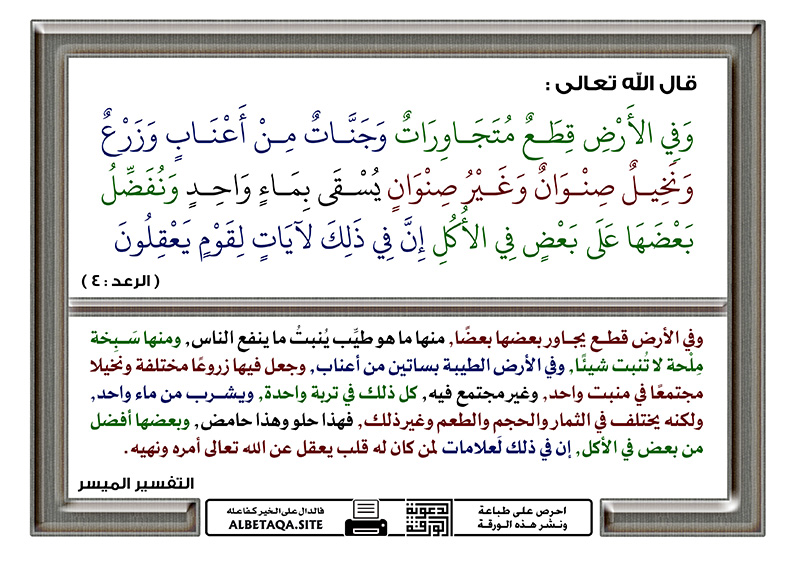 قال الله تعالى :
وَفِي الأَرْضِ قِطَعٌ مُتَجَاوِرَاتٌ وَجَنَّاتٌ مِنْ أَعْنَابٍ وَزَرْعٌ
وَنَخِيلٌ صِنْوَانٌ وَغَيْرُ صِنْوَانٍ يُسْقَى بِمَاءٍ وَاحِدٍ وَنُفَضِّلُ
بَعْضَهَا عَلَى بَعْضٍ فِي الأُكُلِ إِنَّ فِي ذَلِكَ لآيَاتٍ لِقَوْمٍ يَعْقِلُونَ
( الرعد : ٤ )
وفي الأرض قطع يجاور بعضها بعضًا, منها ما هو طيِّب يُنبتُ ما ينفع الناس, ومنها سَبِخة
مِلْحة لا تُنبت شيئًا, وفي الأرض الطيبة بساتين من أعناب, وجعل فيها زروعًا مختلفة ونخيلا
مجتمعًا في منبت واحد, وغير مجتمع فيه, كل ذلك في تربة واحدة, ويشرب من ماء واحد,
ولكنه يختلف في الثمار والحجم والطعم وغير ذلك, فهذا حلو وهذا حامض, وبعضها أفضل
من بعض في الأكل, إن في ذلك لَعلامات لمن كان له قلب يعقل عن الله تعالى أمره ونهيه.
التفسير الميسر
احرص على طباعة
ونشر هذه الورقة
الورقة
الدعوية
فالدال على الخير كفاعله
ALBETAQA.SITE